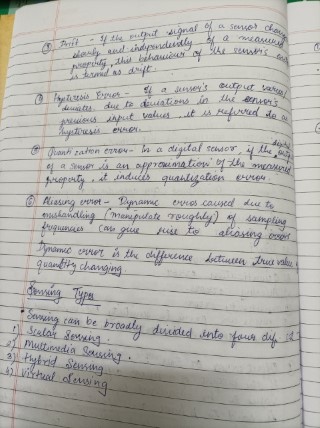 ③ Drift - If the output signal of a sensor changes
slowly and independently of a measured
property, this behaviour of the sensor's
is termed as drift.
Hysterisis Error - If a sensor's output varies
deviates due to deviations in the sensor's
previous input values, it is referred to as
hysterisis error.
Quanti cation error - In a digital sensor, if the digital
of a sensor is an approximation of the measured
property, it induces quantization error.
⑥ Aliasing error - Dynamic error caused due to
mishandling (Manipulate roughly) of sampling
frequencies can give rise to aliasing error
Dynamic error is the difference between true value
quantity changing
Sensing Types
Sensing can be broadly divided into four
1) Scalar Sensing.
2) Multimedia Sensing.
3) Hybrid Sensing
4) Virtual Sensing